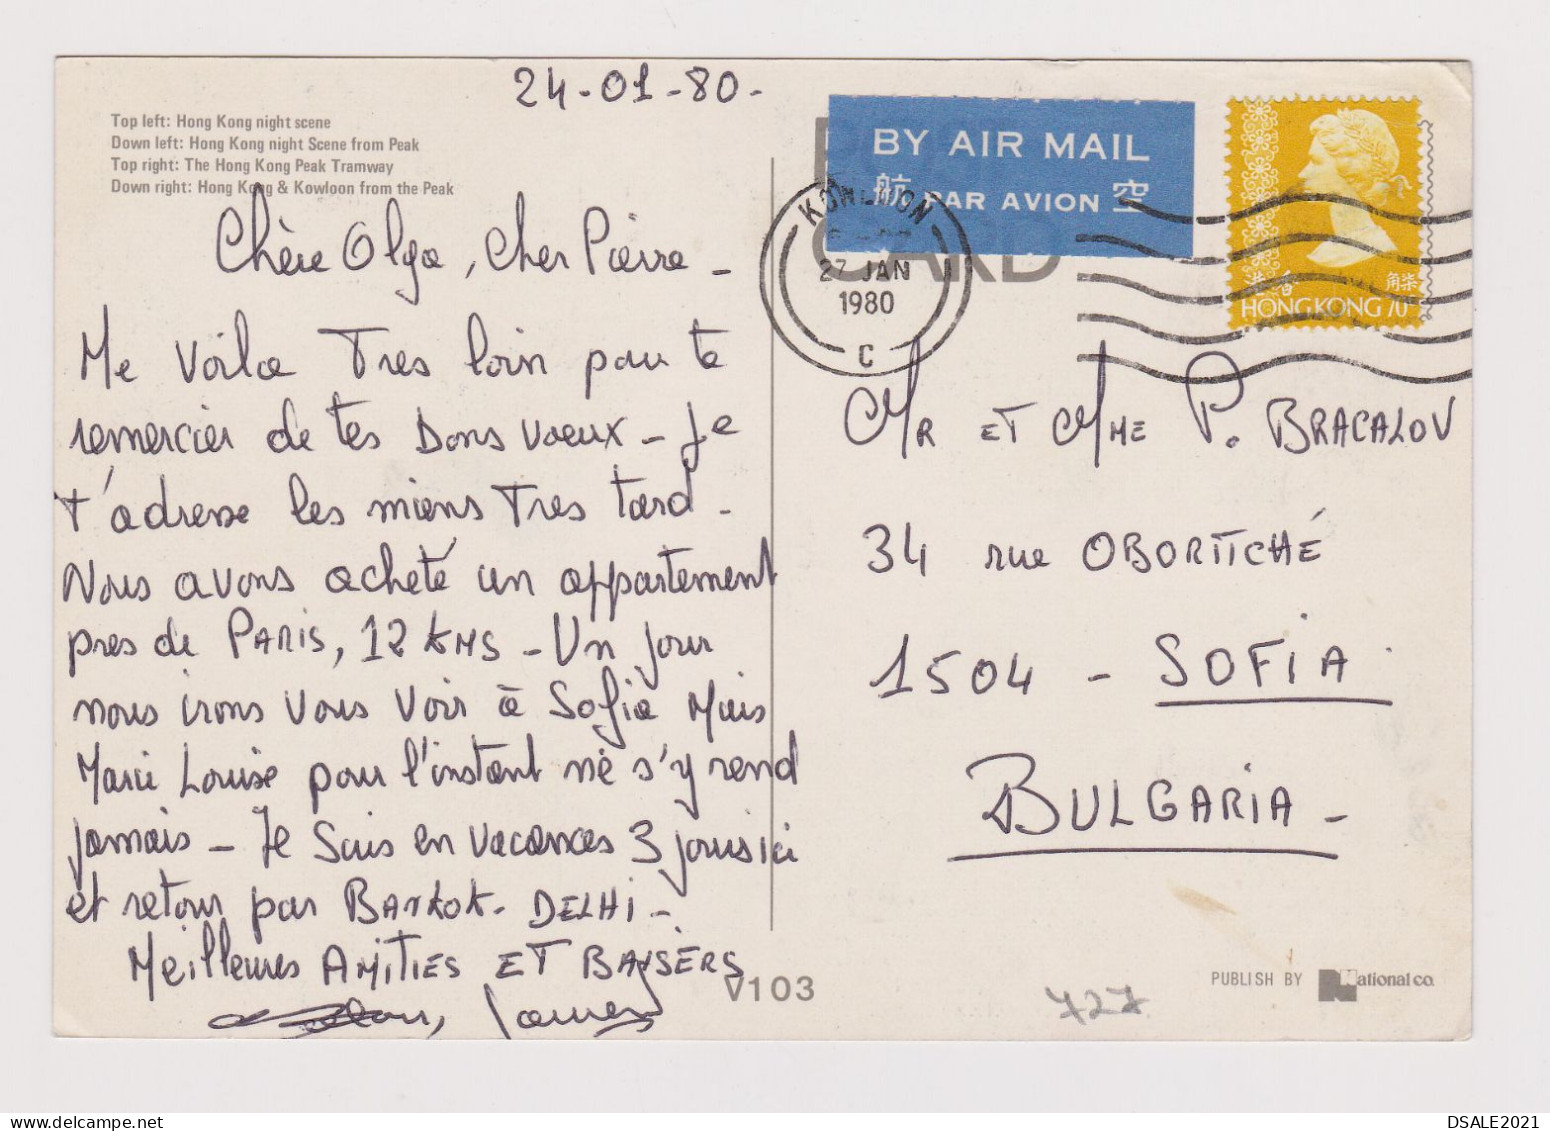 24-01-80-
Top left: Hong Kong night scene
Down left: Hong Kong night Scene from Peak
Top right: The Hong Kong Peak Tramway
Down right: Hong Kong & Kowloon from the Peak
Chère Olga, Cher Pierre -
Me Voila Tres loin pour te
remercier de tes Bons Voeux - Je
t'adresse les miens Tres tard -
Nous avons acheté un appartement
pres de PARIS, 12 KMS - Un jour
nous irons Vous Voir à Sofia Mais
Marie Louise pour l'instant ne s'y rend
jamais - Je Suis en Vacances 3 jours ici
et retour par BANKOK - DELHI -
Meilleures AMITIES ET BAISERS
V103
BY AIR MAIL
航 PAR AVION 空
CARD
KOWLOON
27 JAN
1980
C
港香 角柒
HONG KONG 70¢
Mr ET Mme P. BRACALOV
34 rue OBORITCHÉ
1504 - SOFIA
BULGARIA -
PUBLISH BY National co.
727
DSALE2021